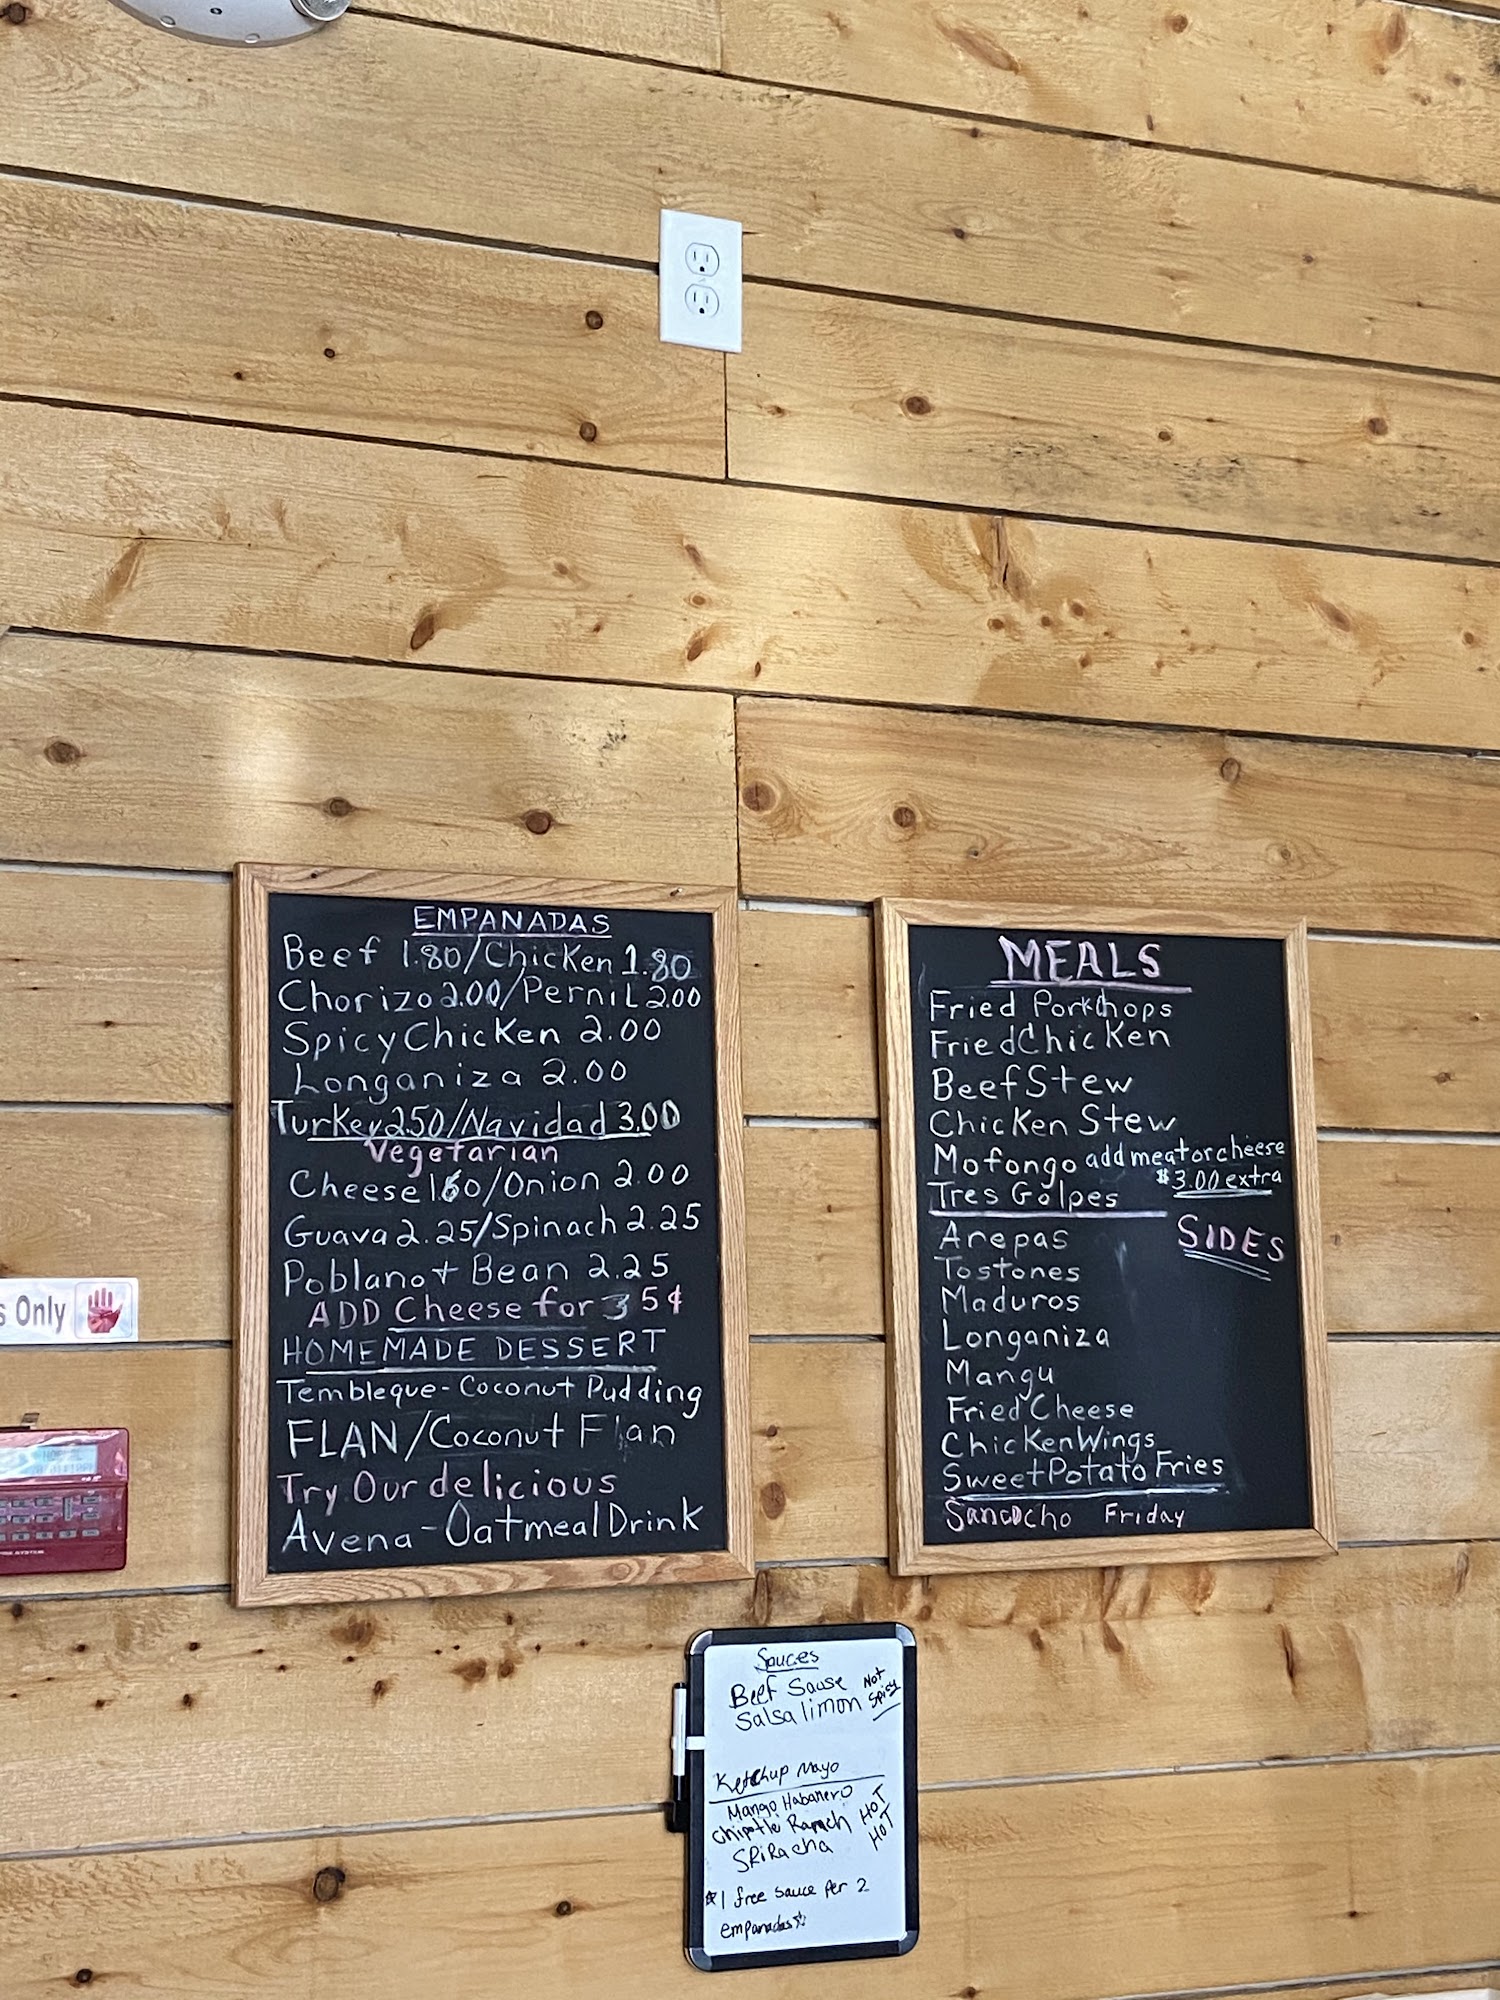 EMPANADAS
Beef 1.80/Chicken 1.80
Chorizo 2.00/Pernil 2.00
Spicy Chicken 2.00
Longaniza 2.00
Turkey 2.50/Navidad 3.00
Vegetarian
Cheese 1.60/Onion 2.00
Guava 2.25/Spinach 2.25
Poblano + Bean 2.25
ADD Cheese for 35¢
HOMEMADE DESSERT
Tembleque-Coconut Pudding
FLAN/Coconut Flan
Try Our delicious
Avena-Oatmeal Drink
MEALS
Fried Porkchops
Fried Chicken
Beef Stew
Chicken Stew
Mofongo add meat or cheese
$3.00 extra
Tres Golpes
SIDES
Arepas
Tostones
Maduros
Longaniza
Mangu
Fried Cheese
Chicken Wings
Sweet Potato Fries
Sancocho Friday
s Only
Sauces
Beef Sause Not
Salsa limon Spicy
Ketchup Mayo
Mango Habanero
Chipotle Ranch HOT
SRiRacha HOT
*1 free sauce per 2
empanadas*